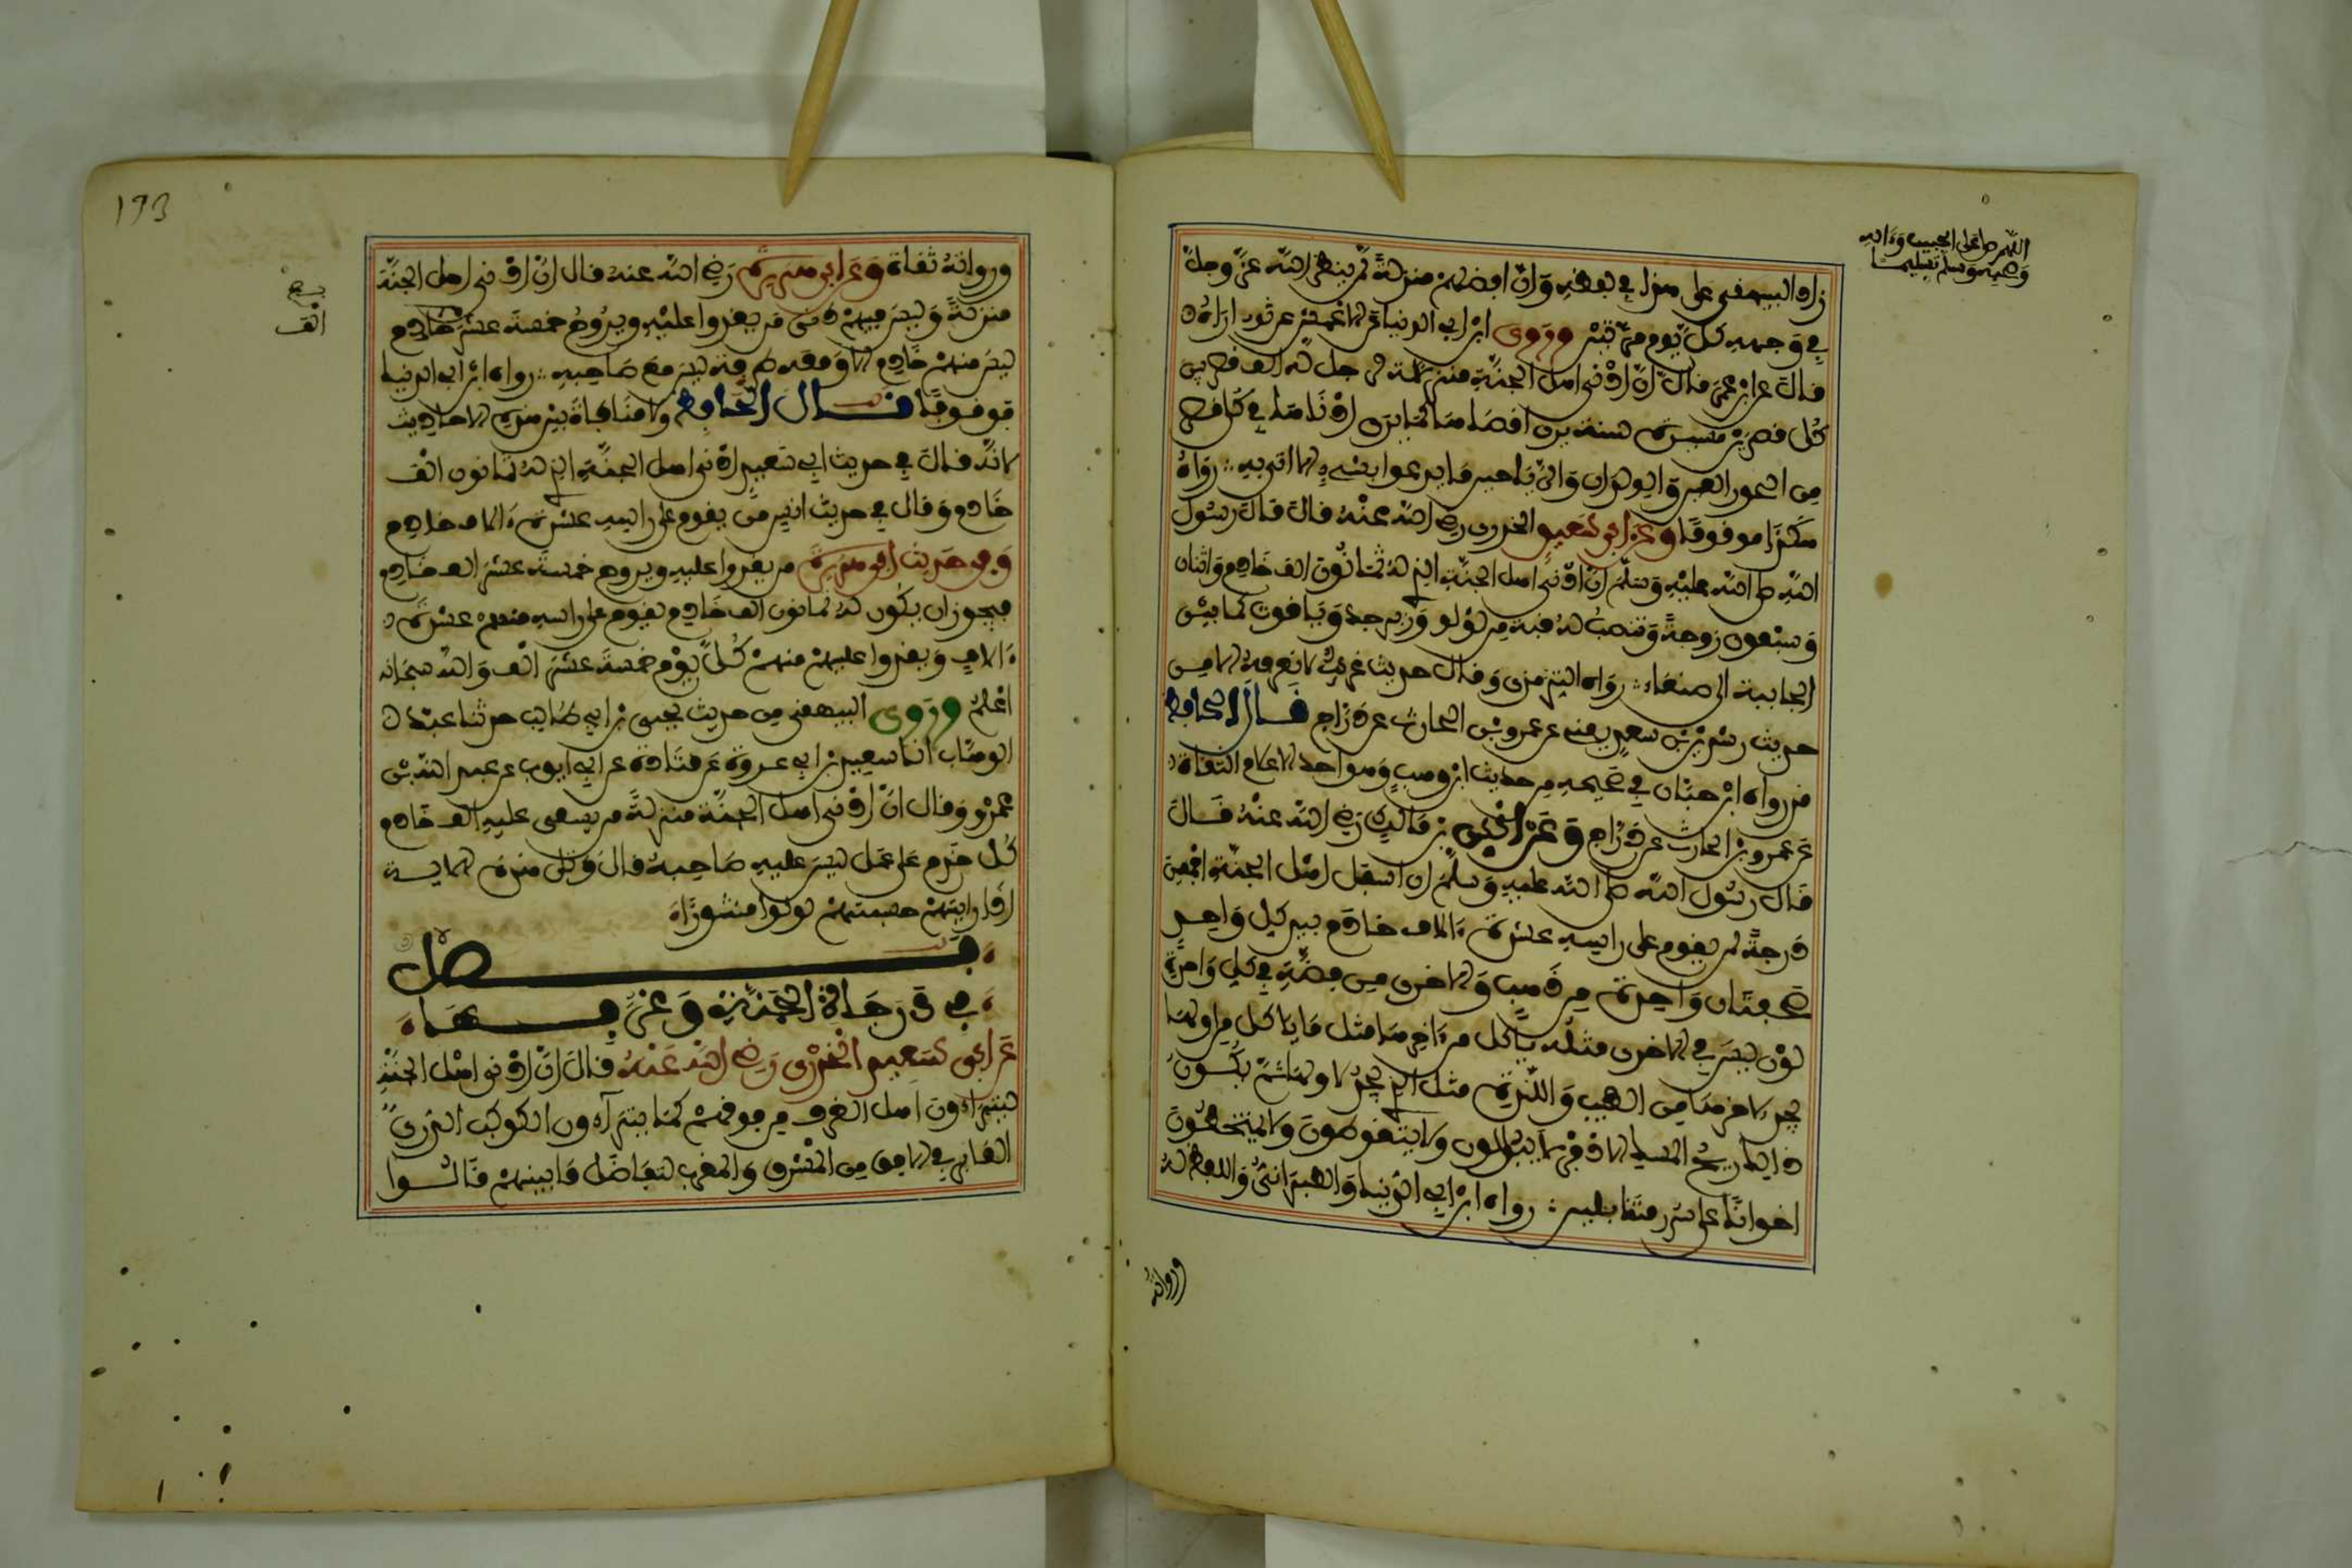 اللهم صل على الحبيب وءاله
وصحبه وسلم تسليما
زاد البيهقي على هذا في لفظه وان افضلهم منزلة لمن ينظر الله عز وجل
في وجهه كل يوم مرتين وروى ابن ابي الدنيا عن الاعمش عن ثوير اراه
قال عن ابن عمر قال ان ادنى اهل الجنة منزلة لرجل له الف قصر بين
كل قصرين مسيرة سنة يرى اقصاها كما يرى ادناها في كل قصر
من الحور العين والولدان والرياحين ما يدعوا بشيء الا اتي به رواه
هكذا موقوفا وعن ابي سعيد الخدري رضي الله عنه قال قال رسول
الله صلى الله عليه وسلم ان ادنى اهل الجنة الذي له ثمانون الف خادم واثنان
وسبعون زوجة وتنصب له قبة من لؤلؤ وزبرجد وياقوت كما بين
الجابية الى صنعاء رواه الترمذي وقال حديث غريب لا نعرفه الا من
حديث رشدين بن سعد يعني عن عمرو بن الحارث عن دراج قال الحافظ
قد رواه ابن حبان في صحيحه من حديث ابن وهب وهو احد الاعلام الثقاة
عن عمرو بن الحارث عن دراج وعن انس بن مالك رضي الله عنه قال
قال رسول الله صلى الله عليه وسلم ان اسفل اهل الجنة اجمعين
درجة لمن يقوم على راسه عشرة ءالاف خادم بيد كل واحد
صحفتان واحدة من ذهب والاخرى من فضة في كل واحدة
لون ليس في الاخرى مثله ياكل من ءاخرها مثل ما ياكل من اولها
يجد لاخرها من الطيب واللذة مثل الذي يجد لاولها ثم يكون
ذلك ريح المسك الاذفر لا يبولون ولا يتغوطون ولا يمتخطون
اخوانا على سرر متقابلين رواه ابن ابي الدنيا والطبراني واللفظ له
ورواته
193
ورواته ثقاة وعن ابي هريرة رضي الله عنه قال ان ادنى اهل الجنة
منزلة وليس فيهم دني من يغدوا عليه ويروح خمسة عشر خادم
ليس منهم خادم الا ومعه طرفة ليس مع صاحبه رواه ابن ابي الدنيا
موقوفا قال الحافظ ولا منافاة بين هذه الاحاديث
لانه قال في حديث ابي سعيد ادنى اهل الجنة الذي له ثمانون الف
خادم وقال في حديث انس من يقوم على راسه عشرة ءالاف خادم
وفي حديث ابي هريرة من يغدوا عليه ويروح خمسة عشر الف خادم
فيجوز ان يكون له ثمانون الف خادم يقوم على راسه منهم عشرة
ءالاف ويغدوا عليهم منهم كل يوم خمسة عشر الف والله سبحانه
اعلم وروى البيهقي من حديث يحيى بن ابي طالب حدثنا عبد
الوهاب انا سعيد بن ابي عروبة عن قتادة عن ابي ايوب عن عبد الله بن
عمرو وقال ان ادنى اهل الجنة منزلة من يسعى عليه الف خادم
كل خادم على عمل ليس عليه صاحبه قال وتلى هذه الاية
اذا رايتهم حسبتهم لؤلؤا منثورا
فصل
في درجات الجنة وغرفها
عن ابي سعيد الخدري رضي الله عنه قال ان ادنى اهل الجنة
ليتراءون اهل الغرف من فوقهم كما يتراءون الكوكب الدري
الغابر في الافق من المشرق والمغرب لتفاضل ما بينهم قالوا
الف